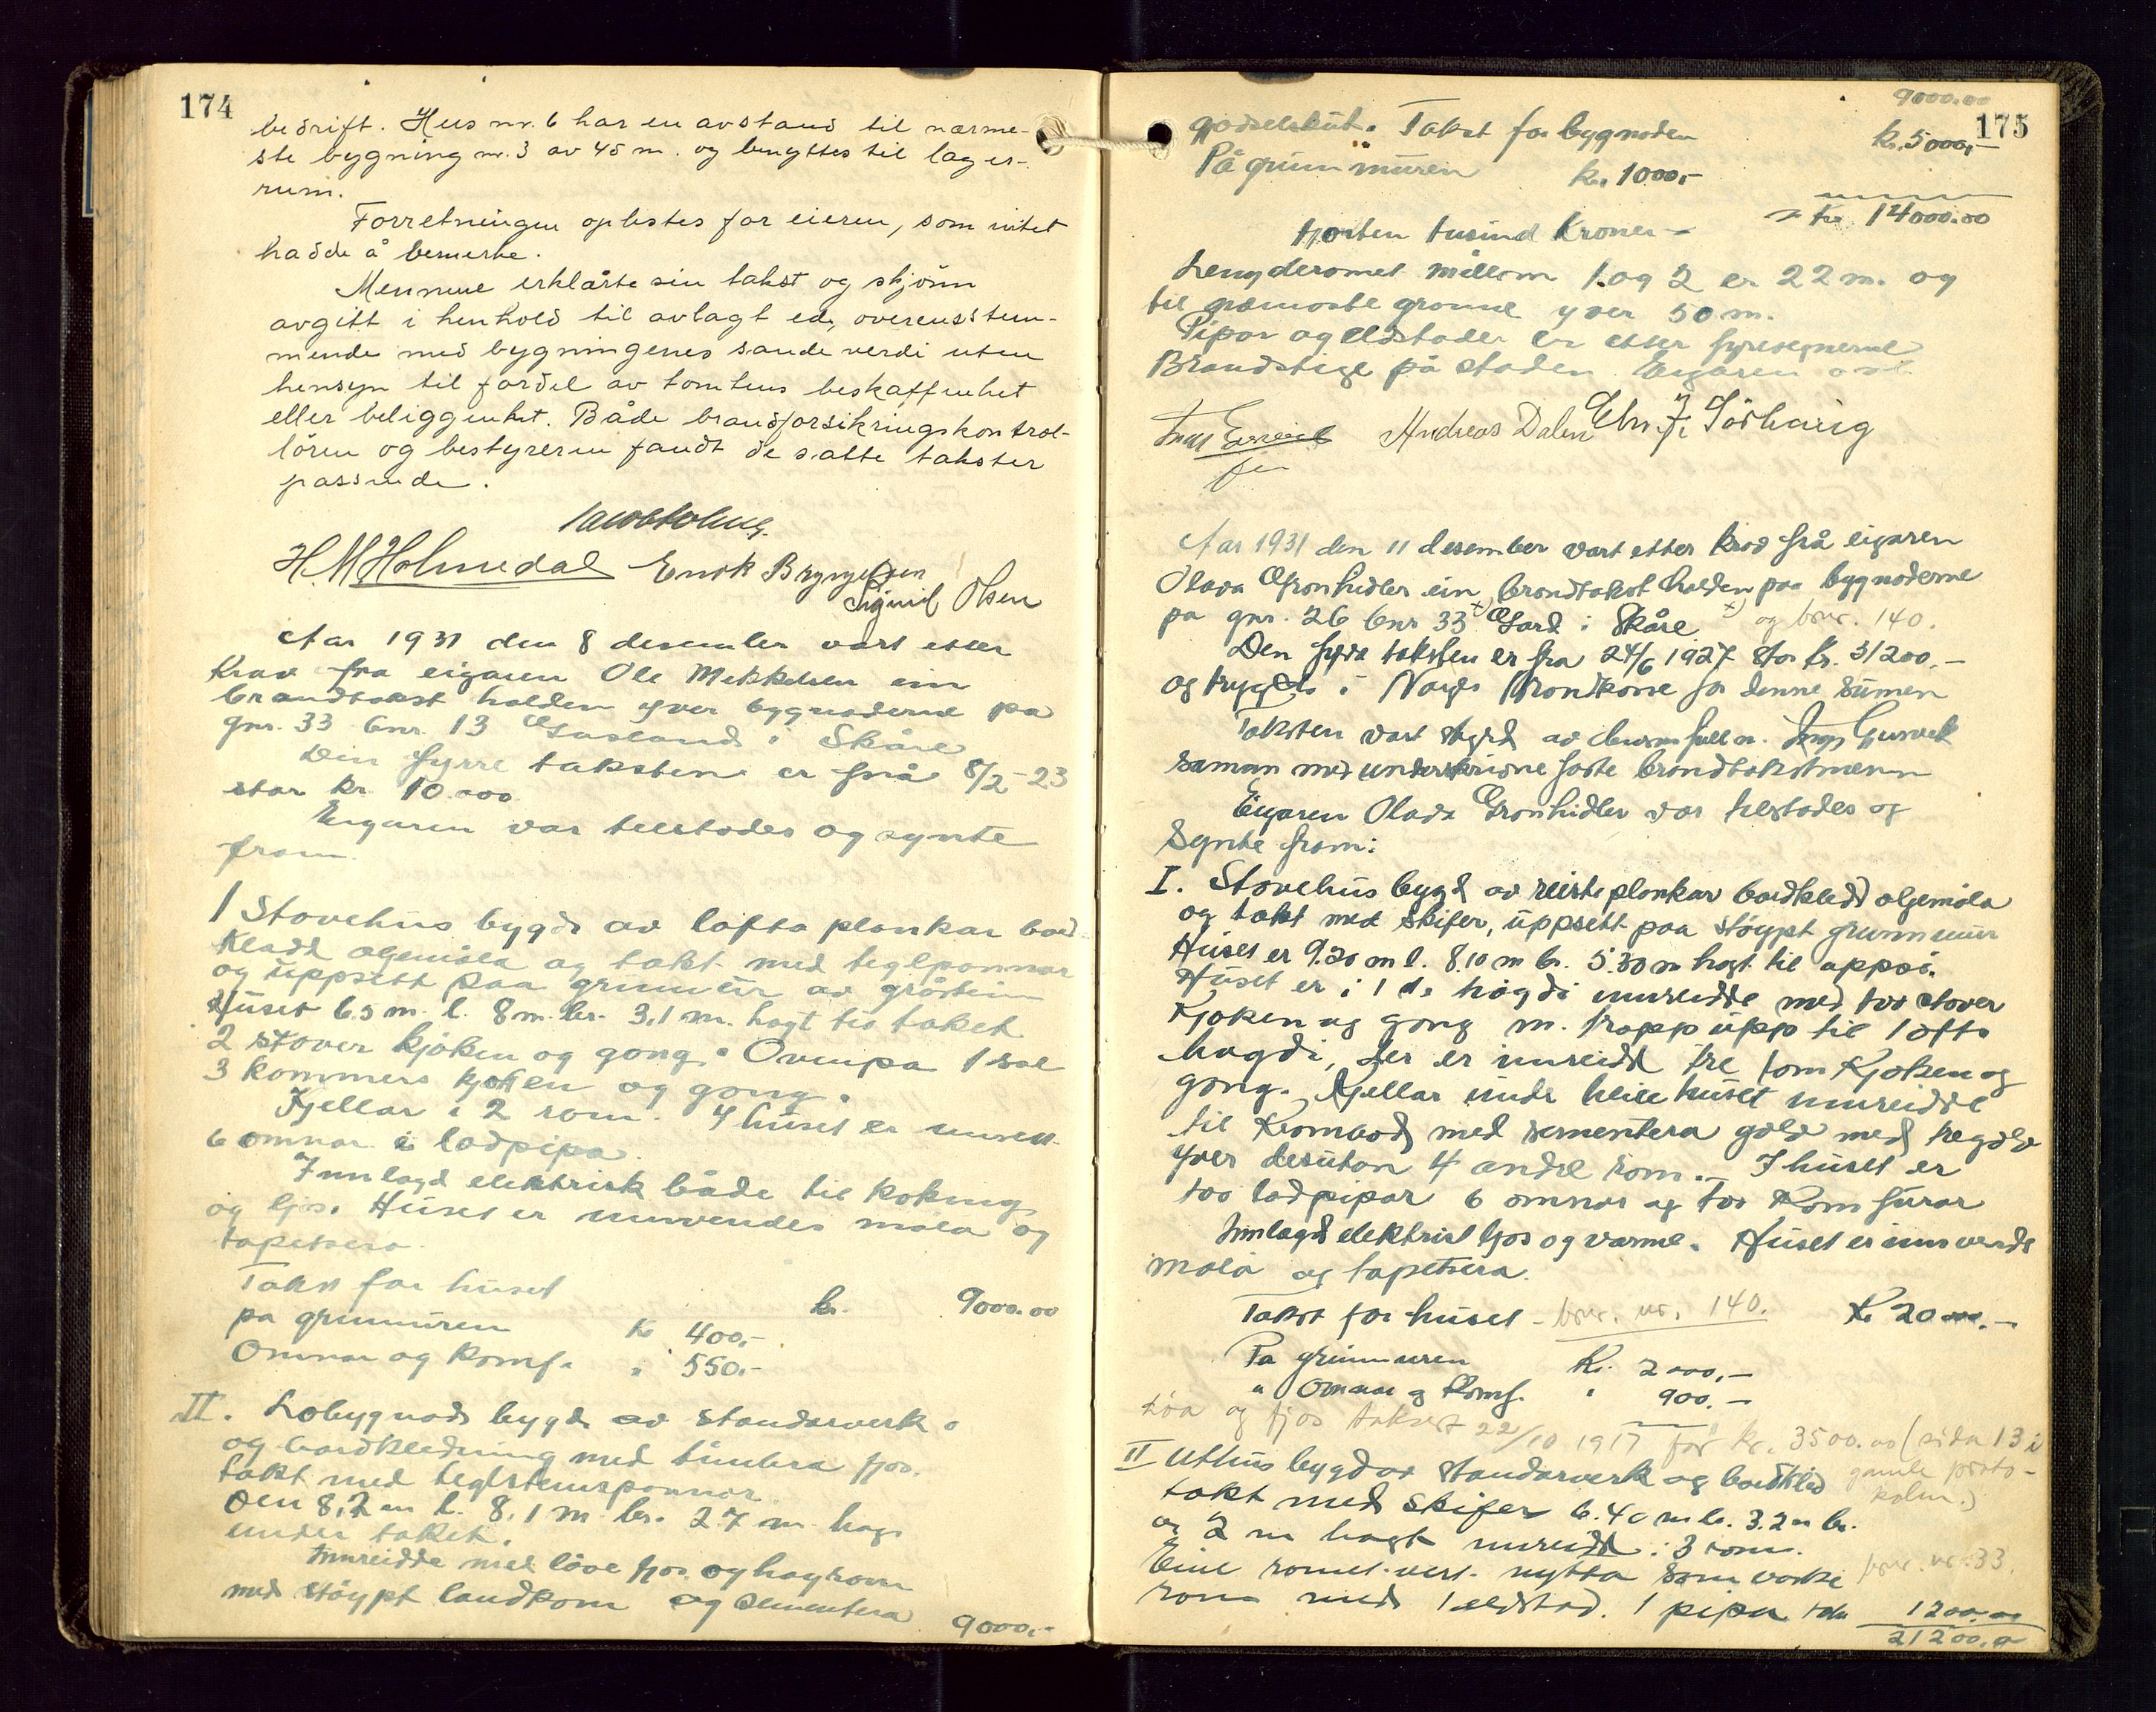 174
bedrift. Hus nr. 6 har en avstand til nærme-
ste bygning nr. 3 av 45 m. og benyttes til lager-
rum.
Forretningen oplestes for eieren, som intet
hadde å bemerke.
Mennene erklærte sin takst og skjønn
avgitt i henhold til avlagt ed, overensstem-
mende med bygningenes sande verdi uten
hensyn til fordel av tomtens beskaffenhet
eller beliggenhet. Både brandforsikringskontrol-
løren og bestyreren fandt de satte takster
passende.
H. M Holmedal Enok Bryngelsen
Sigurd Olsen
Aar 1931 den 8 desember vart etter
krav fra eigaren Ole Mikkelsen ein
brandtakst halden yver bygnaderne pa
gnr. 33 bnr. 13 Gasland i Skåre
Den fyrre taksten er frå 8/2-23
stor kr 10.000
Eigaren var tilstades og synte
fram
1 Stovehus bygd av lafta plankar bord-
kledd oljemåla og takt med teglpannar
og uppsett paa grunnur av gråstein
Huset 6.5 m. l. 8 m. br. 3,1 m. høgt til taket
2 stover kjøken og gong. Ovenpa 1 sal
3 kommers kjøken og gong.
Kjellar i 2 rom. I huset er innsett
6 omnar i ladpipa.
Innlagd elektrisk både til koking
og ljos. Huset er innvendes måla og
tapetsera.
Takst for huset kr. 9000.00
pa grunnuren kr 400,-
Omnar og komf. " 550.-
II. Løbygnad bygd av standarverk
og bordkledning med timbra fjos.
takt med teglsteinspannar
Den 8,2 m l. 8,1 m br. 2.7 m høg
under taket.
Innreidde med løve fjos og høyrom
med støypt landkom og sementera
9000.-
9000.00
175
gjødselskut. Takst for bygnaden kr. 5000,-
På grunnmuren kr. 1000,-
kr. 14000.00
fjorten tusind kroner
Lengderomet millom 1 og 2 er 22 m. og
til næmaste granne yver 50 m.
Pipor og eldstader er etter fyresegnerne
Brandstige på staden. Eigaren
Andreas Dalen Chr. J. Sørhaug
Aar 1931 den 11 desember vart etter krav frå eigaren
Olava Grønhidler ein brandtakst halden paa bygnaderne
pa gnr. 26 bnr 33 x) Gard i Skåre x) og bnr. 140.
Den fyrre taksten er fra 24/6 1927 stor kr. 31200.-
og trygda i Norges Brandkasse for denne sumen
Taksten vart styrd av lensm. fullm.
saman med underskrivne faste brandtakstmenn
Eigaren Olava Grønhidler var tilstades og
Synte fram:
I. Stovehus bygd av reiste plankar bordkledd oljemåla
og takt med skifer, uppsett paa støypt grunnmur
Huset er 9.20 m l. 8.10 m br. 5.30 m høgt til uppsi.
Huset er i 1ste høgdi innreidde med tvo stover
Kjøken og gong m. trapp upp til lofts
høgdi, der er innreidd tre rom Kjøken og
gong. Kjellar unde heile huset innreidde
til Krombod med sementera golv med tregolv
yver desutan 4 andre rom. - I huset er
tvo ladpipar 6 omnar og tvo Komfurar
Innlagd elektrisk ljos og varme. Huset er innvendes
måla og tapetsera.
Takst for huset - bnr. nr. 140. Kr 20 000.-
Pa grunnmuren Kr. 2000,-
" Omnar og Komf. " 900.-
Løa og fjos taksert 22/10 1917 for kr. 3500.00 (sida 13 i
gamle proto-
kollen.)
II Uthus bygd av standarverk og bordkled
takt med skifer 6.40 m l. 3.2 m br.
og 2 m høgt innreidd i 3 rom.
Eine romet vert nytta som vaske bnr. nr. 33.
rom med 1 eldstad. 1 pipa 1200.00
21200.00